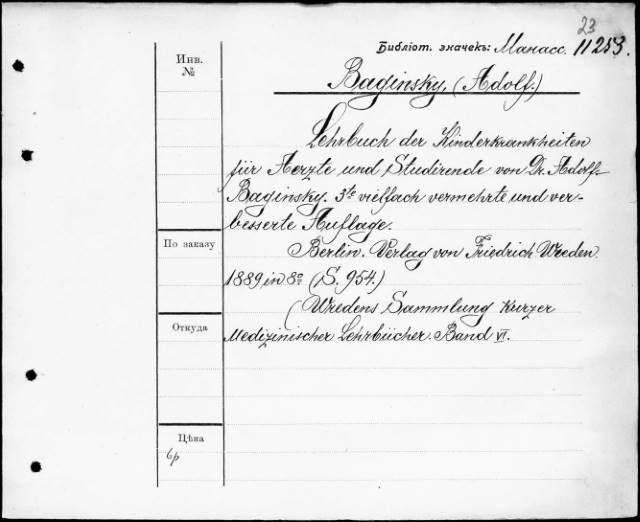 23
Библіот. значекъ: Манасс. 11253.
Инв.
№
Baginsky, (Adolf.)
Lehrbuch der Kinderkrankheiten
für Aerzte und Studirende von Dr. Adolf
Baginsky. 3te vielfach vermehrte und ver-
besserte Auflage.
По заказу
Berlin. Verlag von Friedrich Wreden.
1889 in 8º (S. 954.)
(Wredens Sammlung Kurzer
Откуда
Medizinischer Lehrbücher. Band VI.
Цѣна
6р